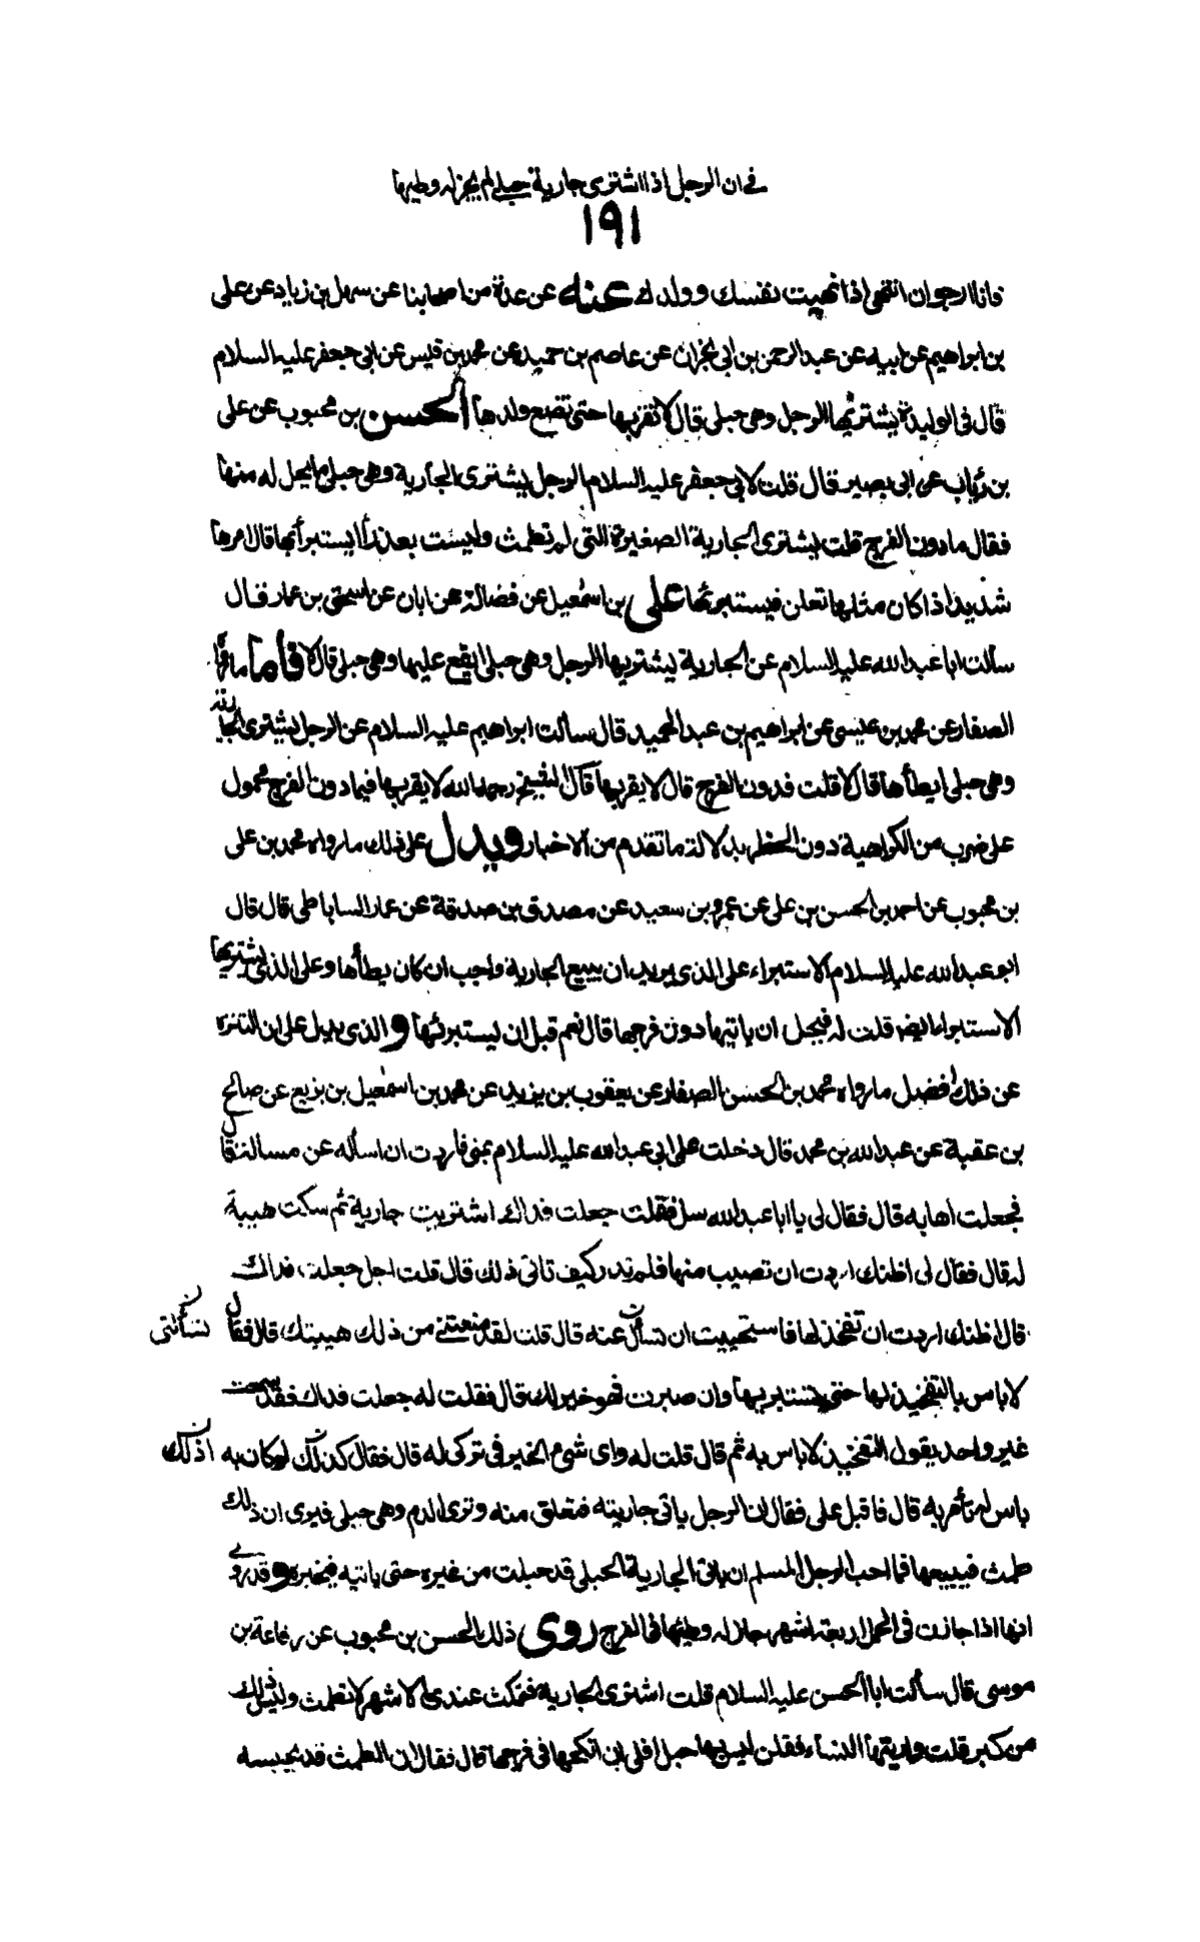 في ان الرجل اذا اشترى جارية حبلى لم يجز له وطيها
١٩١
فانا ارجو ان انتهى اذا نهيت نفسك وولدك عنه عن عدة من اصحابنا عن سهل بن زياد عن على
بن ابراهيم عن ابيه عن عبد الرحمن بن ابى نجران عن عاصم بن حميد عن محمد بن قيس عن ابى جعفر عليه السلام
قال فى الوليدة يشتريها الرجل وهى حبلى قال لا تقربها حتى تضع ولدها الحسن بن محبوب عن على
بن رئاب عن ابى بصير قال قلت لابى جعفر عليه السلام الرجل يشترى الجارية وهى حبلى ما يحل له منها
فقال ما دون الفرج قلت يشترى الجارية الصغيرة التى لم تطمث وليست بعذراء ايستبرأها قال امرها
شديد اذا كان مثلها تعلق فيستبرئها على بن اسمعيل عن فضالة عن ابان عن اسحق بن عمار قال
سألت ابا عبد الله عليه السلام عن الجارية يشتريها الرجل وهى حبلى ايقع عليها وهى حبلى قال لا فاما ما رواه
الصفار عن محمد بن عيسى عن ابراهيم بن عبد الحميد قال سألت ابا ابراهيم عليه السلام عن الرجل يشترى الجارية
وهى حبلى ايطأها قال لا قلت فدون الفرج قال لا يقربها قال الشيخ رحمه الله لا يقربها فيما دون الفرج محمول
على ضرب من الكراهية دون الحظر بدلالة ما تقدم من الاخبار ويدل على ذلك ما رواه محمد بن على
بن محبوب عن احمد بن الحسن بن على عن عمرو بن سعيد عن مصدق بن صدقة عن عمار الساباطى قال قال
ابو عبد الله عليه السلام الاستبراء على الذى يريد ان يبيع الجارية واجب ان كان يطأها وعلى الذى يشتريها
الاستبراء ايضا قلت له فيحل ان ياتيها دون فرجها قال نعم قبل ان يستبرئها والذى يدل على ان التنزه
عن ذلك افضل ما رواه محمد بن الحسن الصفار عن يعقوب بن يزيد عن محمد بن اسمعيل بن بزيع عن صالح
بن عقبة عن عبد الله بن محمد قال دخلت على ابى عبد الله عليه السلام بمنى فاردت ان اسأله عن مسألة قال
فجعلت اهابه قال فقال لى يا ابا عبد الله سل فقلت جعلت فداك اشتريت جارية ثم سكت هيبة
له قال فقال لى اظنك اردت ان تصيب منها فلم تدر كيف تاتى ذلك قال قلت اجل جعلت فداك
قال اظنك اردت ان تفخذ لها فاستحييت ان تسأل عنه قال قلت لقد منعتنى من ذلك هيبتك قال فقال
لا باس بالتفخيذ لها حتى يستبريها وان صبرت فهو خير لك قال فقلت له جعلت فداك فقد سمعت
غير واحد يقول التفخيذ لا باس به ثم قال قلت له واى شئ الخير فى تركى له قال فقال كذلك لو كان به
باس لم نأمر به قال فاقبل على فقال ان الرجل ياتى جاريته فتعلق منه وترى الدم وهى حبلى فيرى ان ذلك
طمث فيبيعها فما احب للرجل المسلم ان ياتى الجارية الحبلى قد حبلت من غيره حتى ياتيه فيخبره وقد روى
انها اذا جازت فى الحمل اربعة اشهر جاز له وطئها فى الفرج روى ذلك الحسن بن محبوب عن رفاعة بن
موسى قال سألت ابا الحسن عليه السلام قلت اشترى الجارية فتمكث عندى الاشهر لا تطمث وليس ذلك
من كبر قلت واريتها النساء فقلن ليس بها حبل افلى ان انكحها فى فرجها قال فقال ان الطمث قد يحبسه